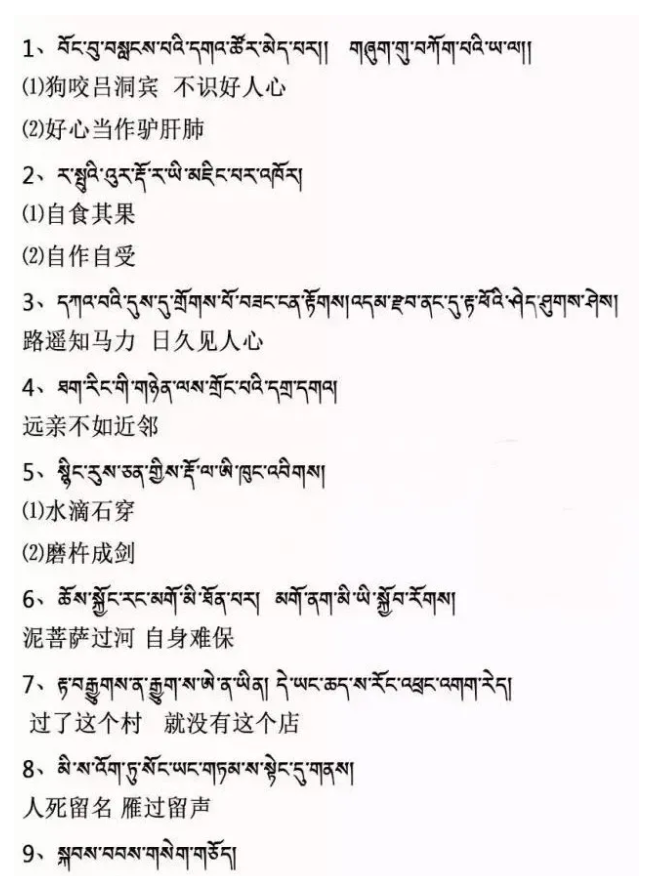 1、བོང་བུ་བསླངས་པའི་དགའ་ཚོར་མེད་པར།། གཞུག་གུ་བཀོག་པའི་ཡ་ལ།།
⑴狗咬吕洞宾 不识好人心
⑵好心当作驴肝肺
2、ར་སྤུའི་འུར་རྡོ་ར་ཡི་མཇིང་པར་འཁོར།
⑴自食其果
⑵自作自受
3、དཀའ་བའི་དུས་དུ་གྲོགས་པོ་བཟང་ངན་རྟོགས།འདམ་རྫབ་ནང་དུ་རྟ་ཕོའི་ཤེད་ཤུགས་ཤེས།
路遥知马力 日久见人心
4、ཐག་རིང་གི་གཉེན་ལས་གྲོང་པའི་དགྲ་དགའ།
远亲不如近邻
5、སྙིང་རུས་ཅན་གྱིས་རྡོ་ལ་ཨི་ཁུང་འབིགས།
⑴水滴石穿
⑵磨杵成剑
6、ཆོས་སྐྱོང་རང་མགོ་མི་ཐོན་པར། མགོ་ནག་མི་ཡི་སྐྱོབ་རོགས།
泥菩萨过河 自身难保
7、རྟ་བརྒྱུགས་ན་རྒྱུག་ས་ཨེ་ན་ཡིན། དེ་ཡང་ཆད་ས་རོང་འཕྲང་འགག་རེད།
过了这个村 就没有这个店
8、མི་ས་འོག་ཏུ་སོང་ཡང་གཏམ་ས་སྟེང་དུ་གནས།
人死留名 雁过留声
9、སྐབས་བབས་གསེག་གཅོད།